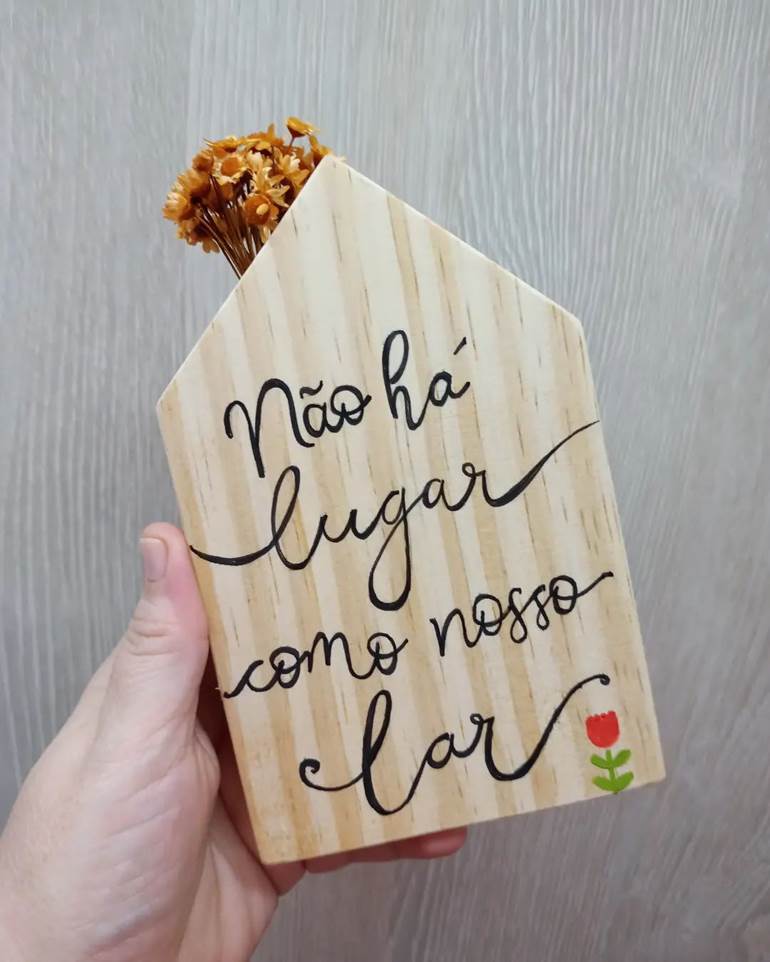 Não há
lugar
como nosso
lar